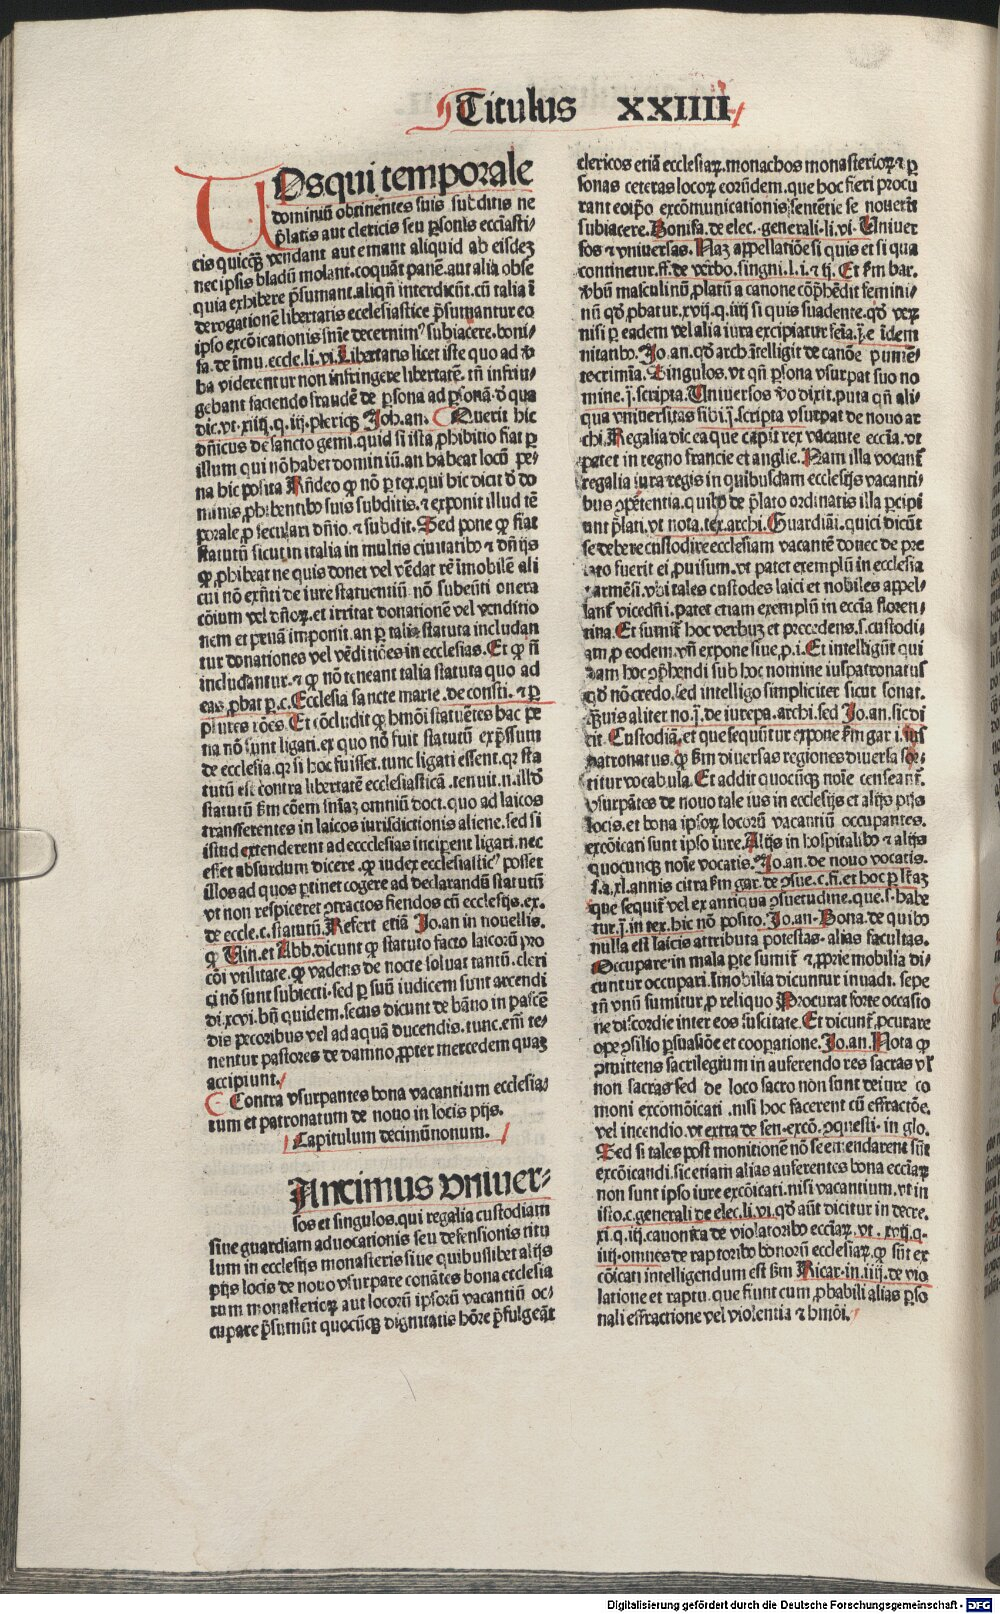 Titulus XXIIII
Osqui temporale
dominiū obtinentes suis subditis ne
p̄latis aut clericis seu ꝑsonis ecc̄iasti-
cis quicq̄ꝫ vendant aut emant aliquid ab eisdeꝫ
nec ipsis bladū molant.coquāt panē.aut alia obse
quia exhibere p̄sumant.aliqn̄ interdicūt.cū talia ī
derogationē libertatis ecclesiastice p̄sumantur eo
ipso excōicationis sn̄ie decernim⁹ subiacere.boni-
fa.de īmu.eccle.li.vi Libertatis licet iste quo ad ꝟ
ba viderentur non infringere libertatē. tn̄ infrin-
gebant faciendo fraudē de ꝑsona ad ꝑsonā.ꝺ qua
dic.vt.xiiij.q.iij.plericꝗꝫ Joh.an. Querit hic
dn̄icus de sancto gemi.quid si ista ꝓhibitio fiat ꝑ
illum qui nō habet dominiū.an habeat locū pe-
na hic posita Rn̄deo ꝙ nō ꝑ tex.qui hic dicit ꝺ do
minis ꝓhibentibꝰ suis subditis.⁊ exponit illud tē
porale ꝓ seculari dn̄io.⁊ subdit. Sed pone ꝙ fiat
statutū sicut in italia in multis ciuitatibꝰ ⁊ dn̄ijs
ꝙ ꝓhibeat ne quis donet vel vēdat rē imobilē ali
cui nō exn̄ti de iure statuentiū nō subeūti onera
cōium vel dn̄oꝝ.et irritat donationē vel venditio
nem et penā imponit.an ꝑ talia statuta includan
tur donationes vel vēditiōes in ecclesias. Et ꝙ n̄
includantur.⁊ ꝙ nō teneant talia statuta quo ad
eas ꝓbat ꝑ.c. Ecclesia sancte marie .de consti. ⁊ ꝑ
plures rōes. Et cōcludit ꝙ hmōi statuētes hac pe
na nō sunt ligati.ex quo nō fuit statutū exp̄ssum
de ecclesia.qꝛ si hoc fuisset.tunc ligati essent.qꝛ sta
tutū est contra libertatē ecclesiasticā .tenuit.n.illō
statutū ẜm cōem sn̄iaꝫ omniū doct.quo ad laicos
transferentes in laicos iurisdictionis aliene.sed si
istud extenderent ad ecccclesias inciperent ligari.nec
esset absurdum dicere.ꝙ iudex ecclesiastic⁹ posset
illos ad quos ꝑtinet cogere ad declarandū statutū
vt non respiceret ꝯtractos fiendos cū ecclesijs.ex.
de eccle.c.statutū. Refert etiā Jo.an in nouellis.
ꝙ Uin.et Abb.dicunt ꝙ statuto facto laicorū pro
cōi vtilitate.ꝙ vadens de nocte soluat tantū.cleri
ci nō sunt subiecti.sed ꝑ suū iudicem sunt arcendi
di.xcvi.bn̄ quidem.secus dicunt de bāno in pascē
dis pecoribus vel ad aquā ducendis.tunc.em̄ te-
nentur pastores de damno ꝓpter mercedem quaꝫ
accipiunt.
Contra vsurpantes bona vacantium ecclesia-
rum et patronatum de nouo in locis pijs.
Capitulum decimūnonum.
Ancimus vniuer-
sos et singulos.qui regalia custodiam
siue guardiam aduocationis seu defensionis titu
lum in ecclesijs monasteris siue quibuslibet alijs
pijs locis de nouo vsurpare conātes bona ecclesia
rum monasterioꝝ aut locorū ipsorū vacantiū oc-
cupare p̄sumūt quocūqꝫ dignitatis hōre p̄fulgeāt
clericos etiā ecclesiaꝝ.monachos monasterioꝝ ⁊ ꝑ
sonas ceteras locoꝝ eorūdem.que hoc fieri procu
rant eoip̄o excōmunicationis sentētie se nouerit
subiacere. Bonifa.de elec. generali.li.vi. Uniuer
sos ⁊ vniuersas. Naꝫ appellatiōe si quis et si qua
continetur.ff.de verbo.singni.l.i.⁊ ij. Et ẜm bar.
ꝟbū masculinū ꝓlatū a canone cōp̄hēdit femini-
nū qꝺ ꝓbatur.xvij.q.iiij si quis suadente.qꝺ veꝝ
nisi ꝑ eadem vel alia iura excipiatur fēia.j.e īdem
nitatibꝰ. Jo.an.qꝺ arch ītelligit de canōe punīē-
te crimīa. Singulos.vt qn̄ ꝑsona vsurpat suo no
mine.j.scripta. Uniuersos ꝟo dixit.puta qn̄ ali-
qua vniuersitas sibi.j.scripta vsurpat de nouo ar
chi. Regalia dic ea que capit rex vacante ecc̄ia.vt
patet in regno francie et anglie. Nam illa vocant᷑
regalia iura regis in quibusdam ecclesijs vacanti
bus ꝯpetentia.quibꝰ de p̄lato ordinatis illa ꝑcipi
unt p̄lati.vt nota.tex.archi. Guardiā.i.quici dicūt
se debere custodire ecclesiam vacantē donec de pre
lato fuerit ei ꝓuisum.vt patet exemplū in ecclesia
carmēsi.vbi tales custodes laici et nobiles appel-
lant᷑ vicedn̄i.patet etiam exemplū in ecc̄ia floren-
tina. Et sumit᷑ hoc verbuꝫ et precedens.s.custodi-
am.ꝓ eodem.vn̄ expone siue.ꝓ.i. Et intelligūt qui
dam hoc ꝯp̄hendi sub hoc nomine iuspatronatus
qꝺ nō credo.sed intelligo simpliciter sicut sonat.
q̄uis aliter no.j.de iurepa.archi.sed Jo.an.sic di
cit. Custodiā.et que sequūtur expone ẜm gar.i.ius
patronatus.ꝙ ẜm diuersas regiones diuersa sor-
titur vocabula. Et addit quocūqꝫ noīe censeant᷑.
vsurpātes de nouo tale ius in ecclesijs et alijs pijs
locis.et bona ipsoꝝ locorū vacantiū occupantes.
excōicati sunt ipso iure. Alijs in hospitalibꝰ ⁊ alijs
quocunqꝫ noīe vocatis. Jo.an.de nouo vocatis.
s.a.xl.annis citra ẜm gar.de ꝯsue.c.fi.et hoc ꝑ l̄raꝫ
que sequit᷑ vel ex antiqua ꝯsuetudine.que.s.habe
tur.j.in tex.hic nō posito. Jo.an. Bona.de quibꝰ
nulla est laicis attributa potestas. alias facultas.
Occupare in mala ꝑte sumit᷑ ⁊ ꝓprie mobilia di-
cuntur occupari. Imobilia dicuntur inuadi. sepe
tn̄ vnū sumitur ꝓ reliquo Procurat forte occasio
ne discordie inter eos suscitate. Et dicunt᷑ ꝓcurare
ope ꝯsilio ꝑsuasiōe et cooꝑatione. Jo.an. Nota ꝙ
cōmittens sacrilegium in auferendo res sacras vl̓
non sacras sed de loco sacro non sunt de iure co
moni excomōicati .nisi hoc facerent cū effractōe.
vel incendio.vt extra de sen.excō.ꝯquesti. in glo.
Sed si tales post monitionē nō se emendarent sūt
excōicandi.sic etiam alias auferentes bona ecc̄iaꝝ
non sunt ipso iure excōicati.nisi vacantium.vt in
isto.c.generali de elec.li.vi.qꝺ aūt dicitur in decre.
xi.q.iij.canonica de violatoribꝰ ecc̄iaꝝ.vt .xvij.q.
iiij.omnes de raptoribꝰ bonorū ecclesiaꝝ.ꝙ sūt ex
cōicati intelligendum est ẜm Ricar.in.iiij.de vio
latione et raptu.que fiunt cum ꝓbabili alias ꝑso
nali effractione vel violentia ⁊ hmōi.
Digitalisierung gefördert durch die Deutsche Forschungsgemeinschaft - DFG